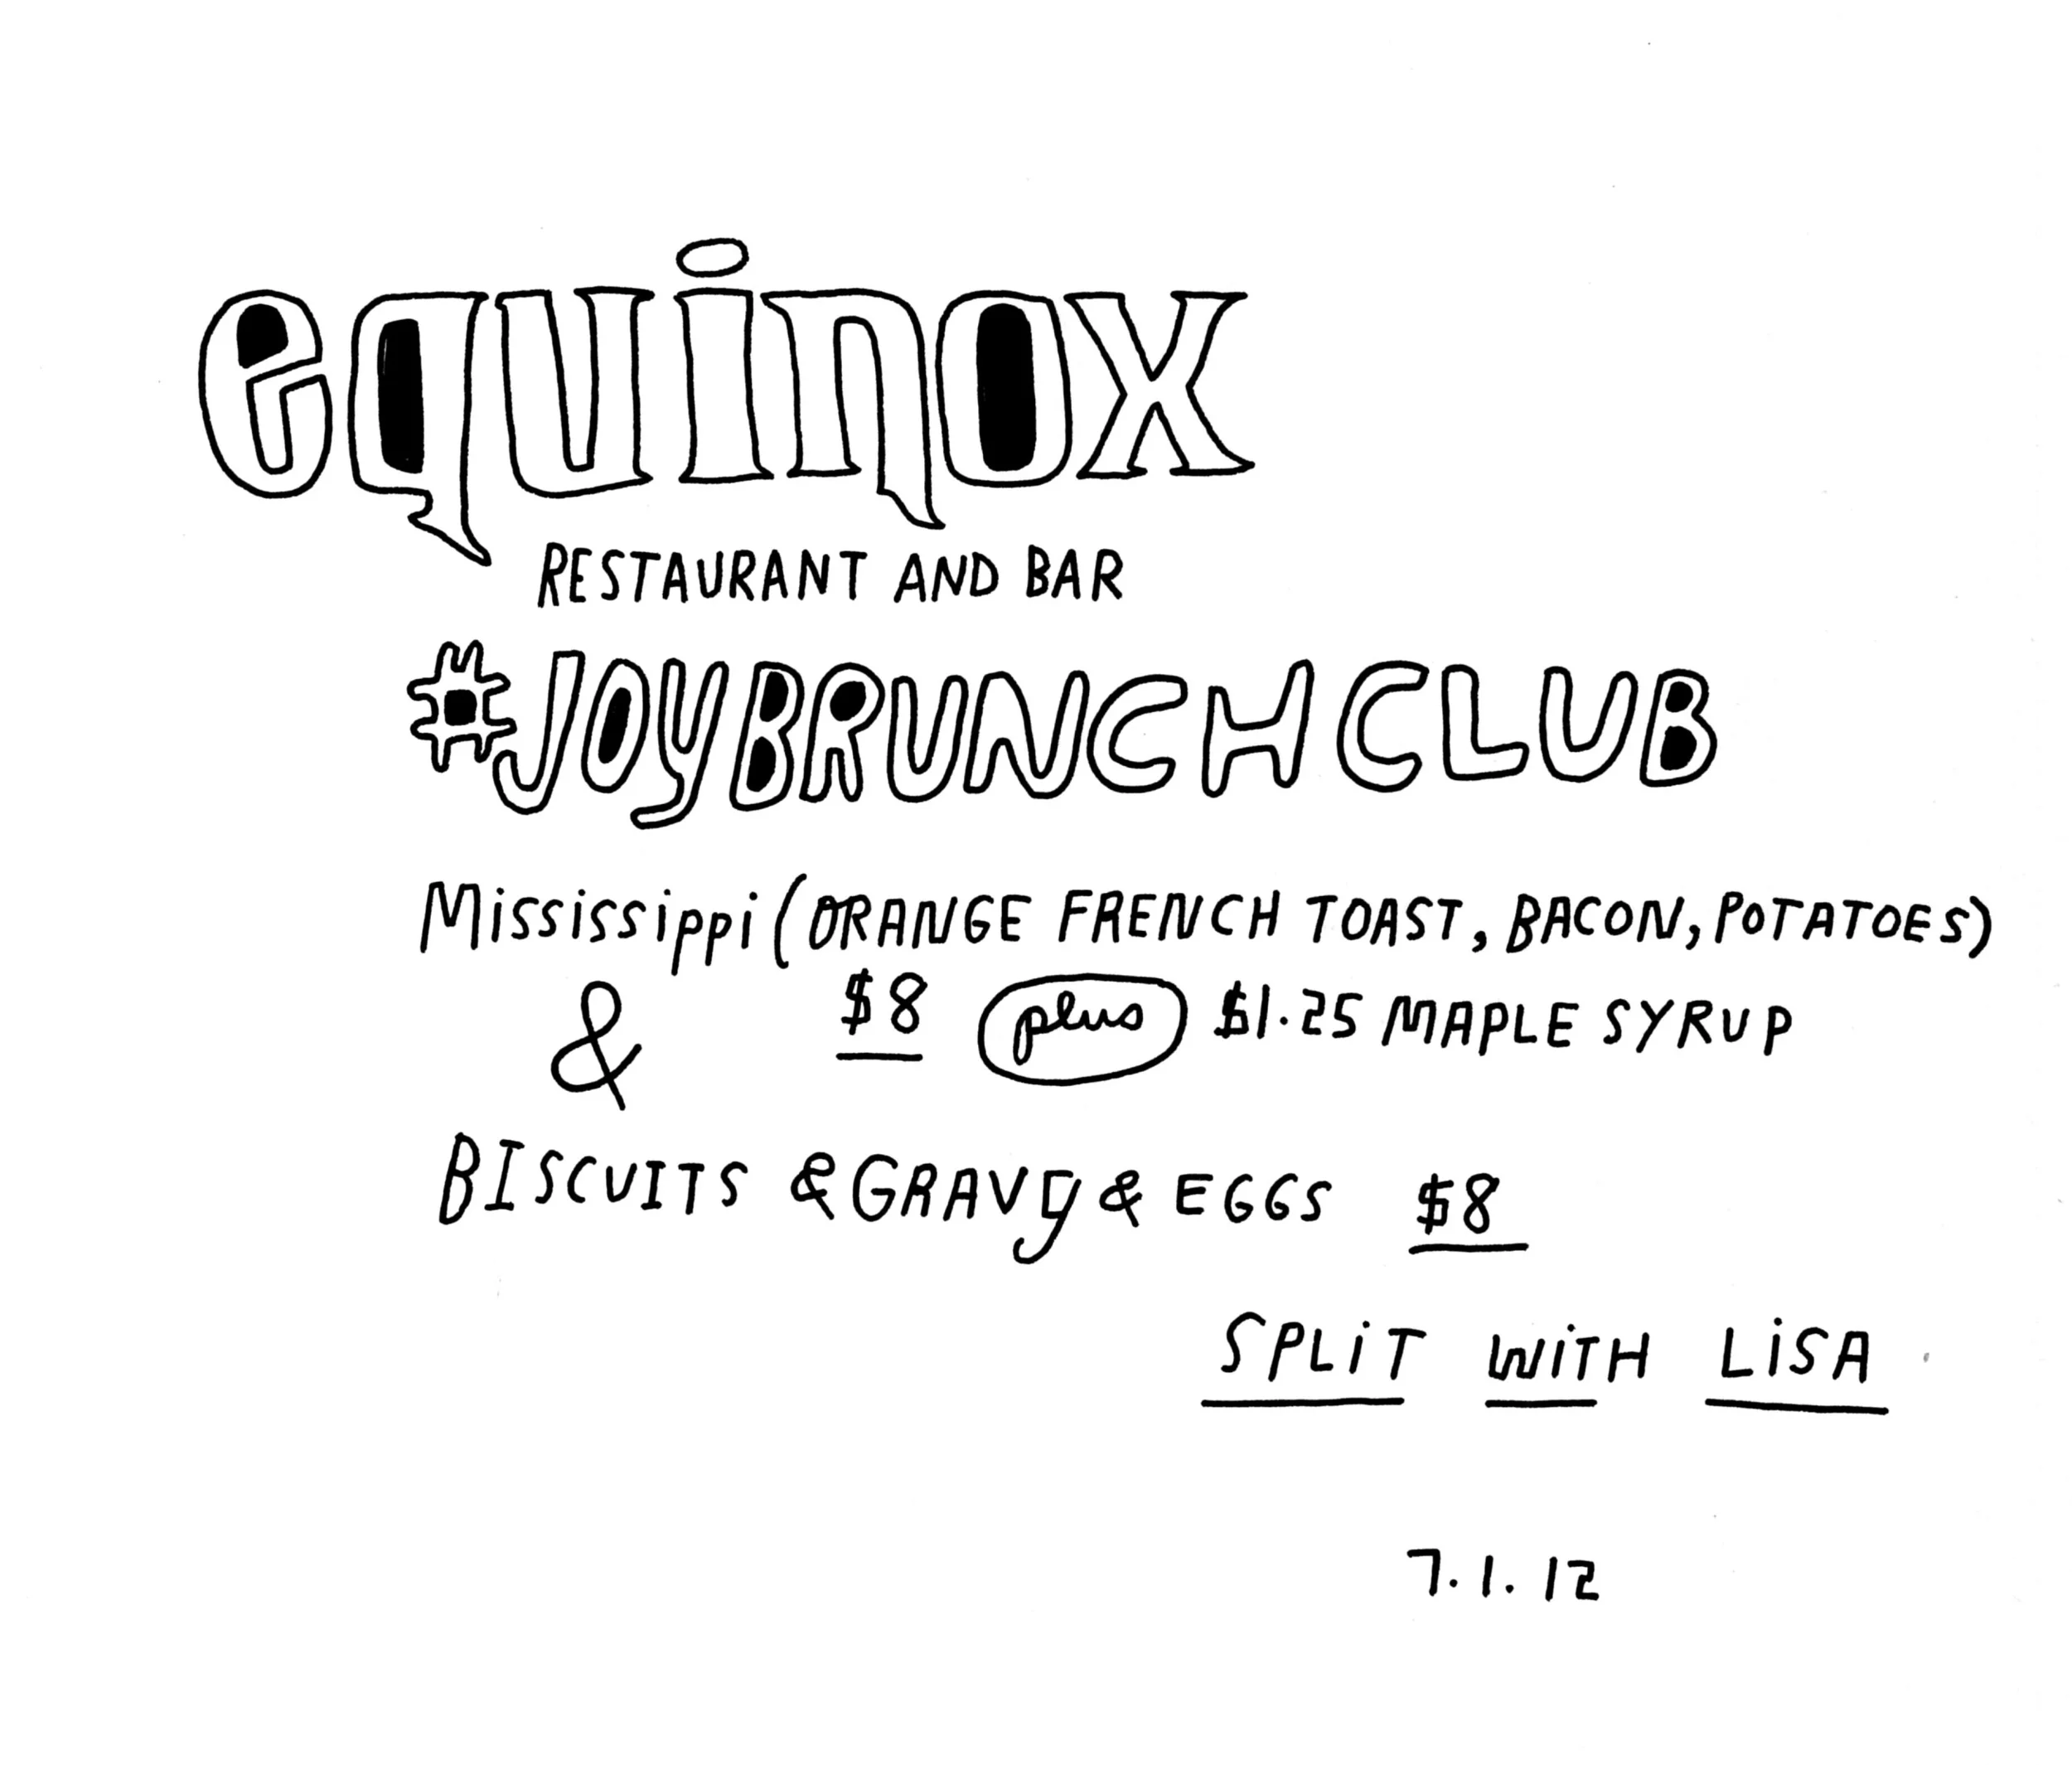 equinox
RESTAURANT AND BAR
#JOYBRUNCHCLUB
Mississippi (ORANGE FRENCH TOAST, BACON, POTATOES)
& $8 plus $1.25 MAPLE SYRUP
BISCUITS & GRAVY & EGGS $8
SPLiT WiTH LiSA
7.1.12